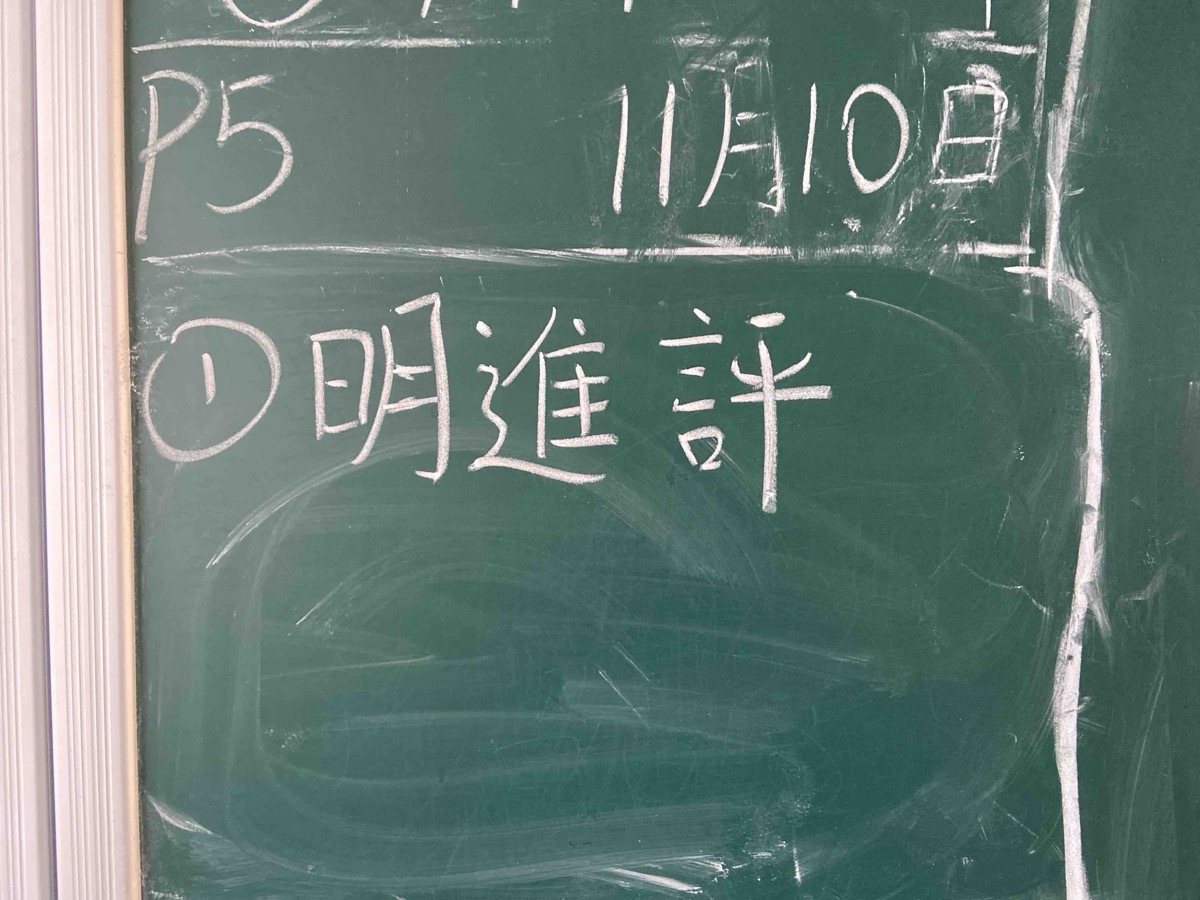 P5 11月10日
① 明進評